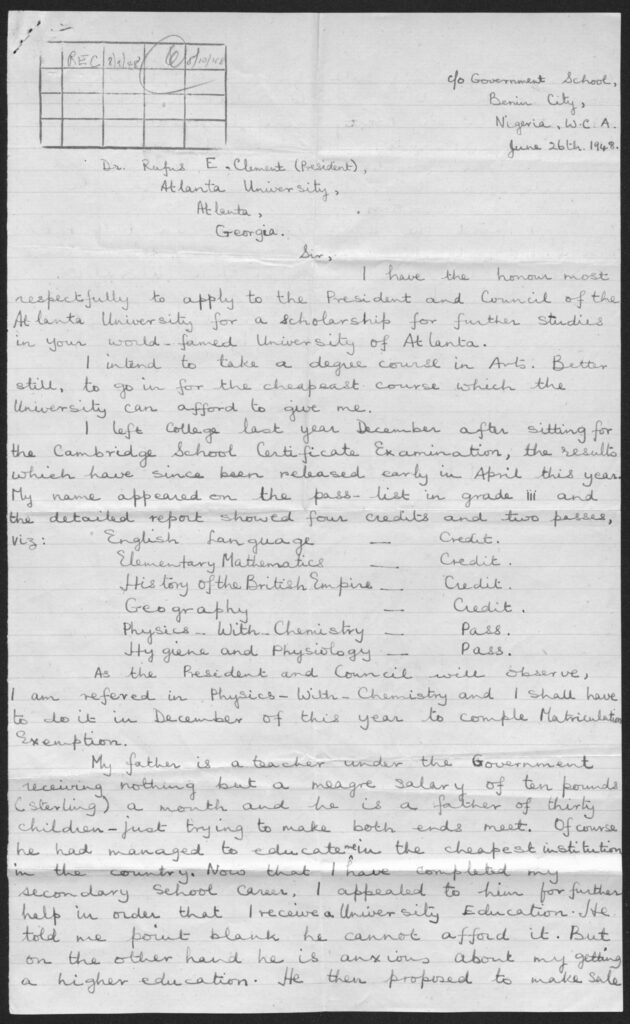 REC 8/9/48 8/10/48
c/o Government School,
Benin City,
Nigeria, W.C.A.
June 26th. 1948.
Dr. Rufus E. Clement (President),
Atlanta University,
Atlanta,
Georgia.
Sir,
I have the honour most
respectfully to apply to the President and Council of the
Atlanta University for a scholarship for further studies
in your world-famed University of Atlanta.
I intend to take a degree course in Arts. Better
still, to go in for the cheapeast course which the
University can afford to give me.
I left College last year December after sitting for
the Cambridge School Certificate Examination, the results
which have since been released early in April this year.
My name appeared on the pass-list in grade iii and
the detailed report showed four credits and two passes,
viz: English Language — Credit.
Elementary Mathematics — Credit.
History of the British Empire — Credit.
Geography — Credit.
Physics-With-Chemistry — Pass.
Hygiene and Physiology — Pass.
As the President and Council will observe,
I am refered in Physics-With-Chemistry and I shall have
to do it in December of this year to comple Matriculation
Exemption.
My father is a teacher under the Government
receiving nothing but a meagre salary of ten pounds
(sterling) a month and he is a father of thirty
children-just trying to make both ends meet. Of course
he had managed to educate me in the cheapest institution
in the country. Now that I have completed my
secondary school career, I appealed to him for further
help in order that I receive a University Education. He
told me point blank he cannot afford it. But
on the other hand he is anxious about my getting
a higher education. He then proposed to make sale